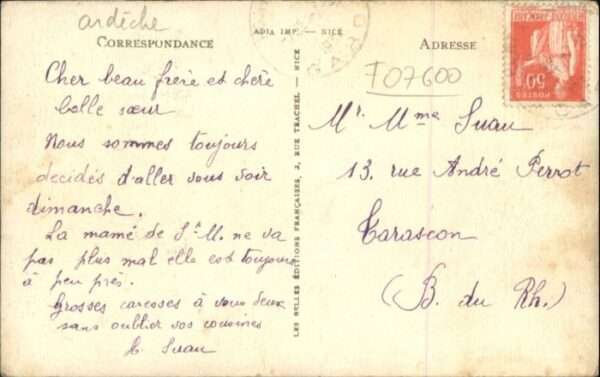 ardèche
CORRESPONDANCE
ADIA IMP. - NICE
ADRESSE
T07600
POSTES
50
Cher beau frère et chère
belle sœur
Nous sommes toujours
décidés d'aller vous voir
dimanche.
La mamé de St M. ne va
pas plus mal elle est toujours
à peu près.
Grosses caresses à vous deux
sans oublier vos cousines
Suau
LES BELLES ÉDITIONS FRANÇAISES, 2, RUE TRACHEL - NICE
Mr. Mme Suau
13, rue André Perrot
Tarascon
(B. du Rh.)